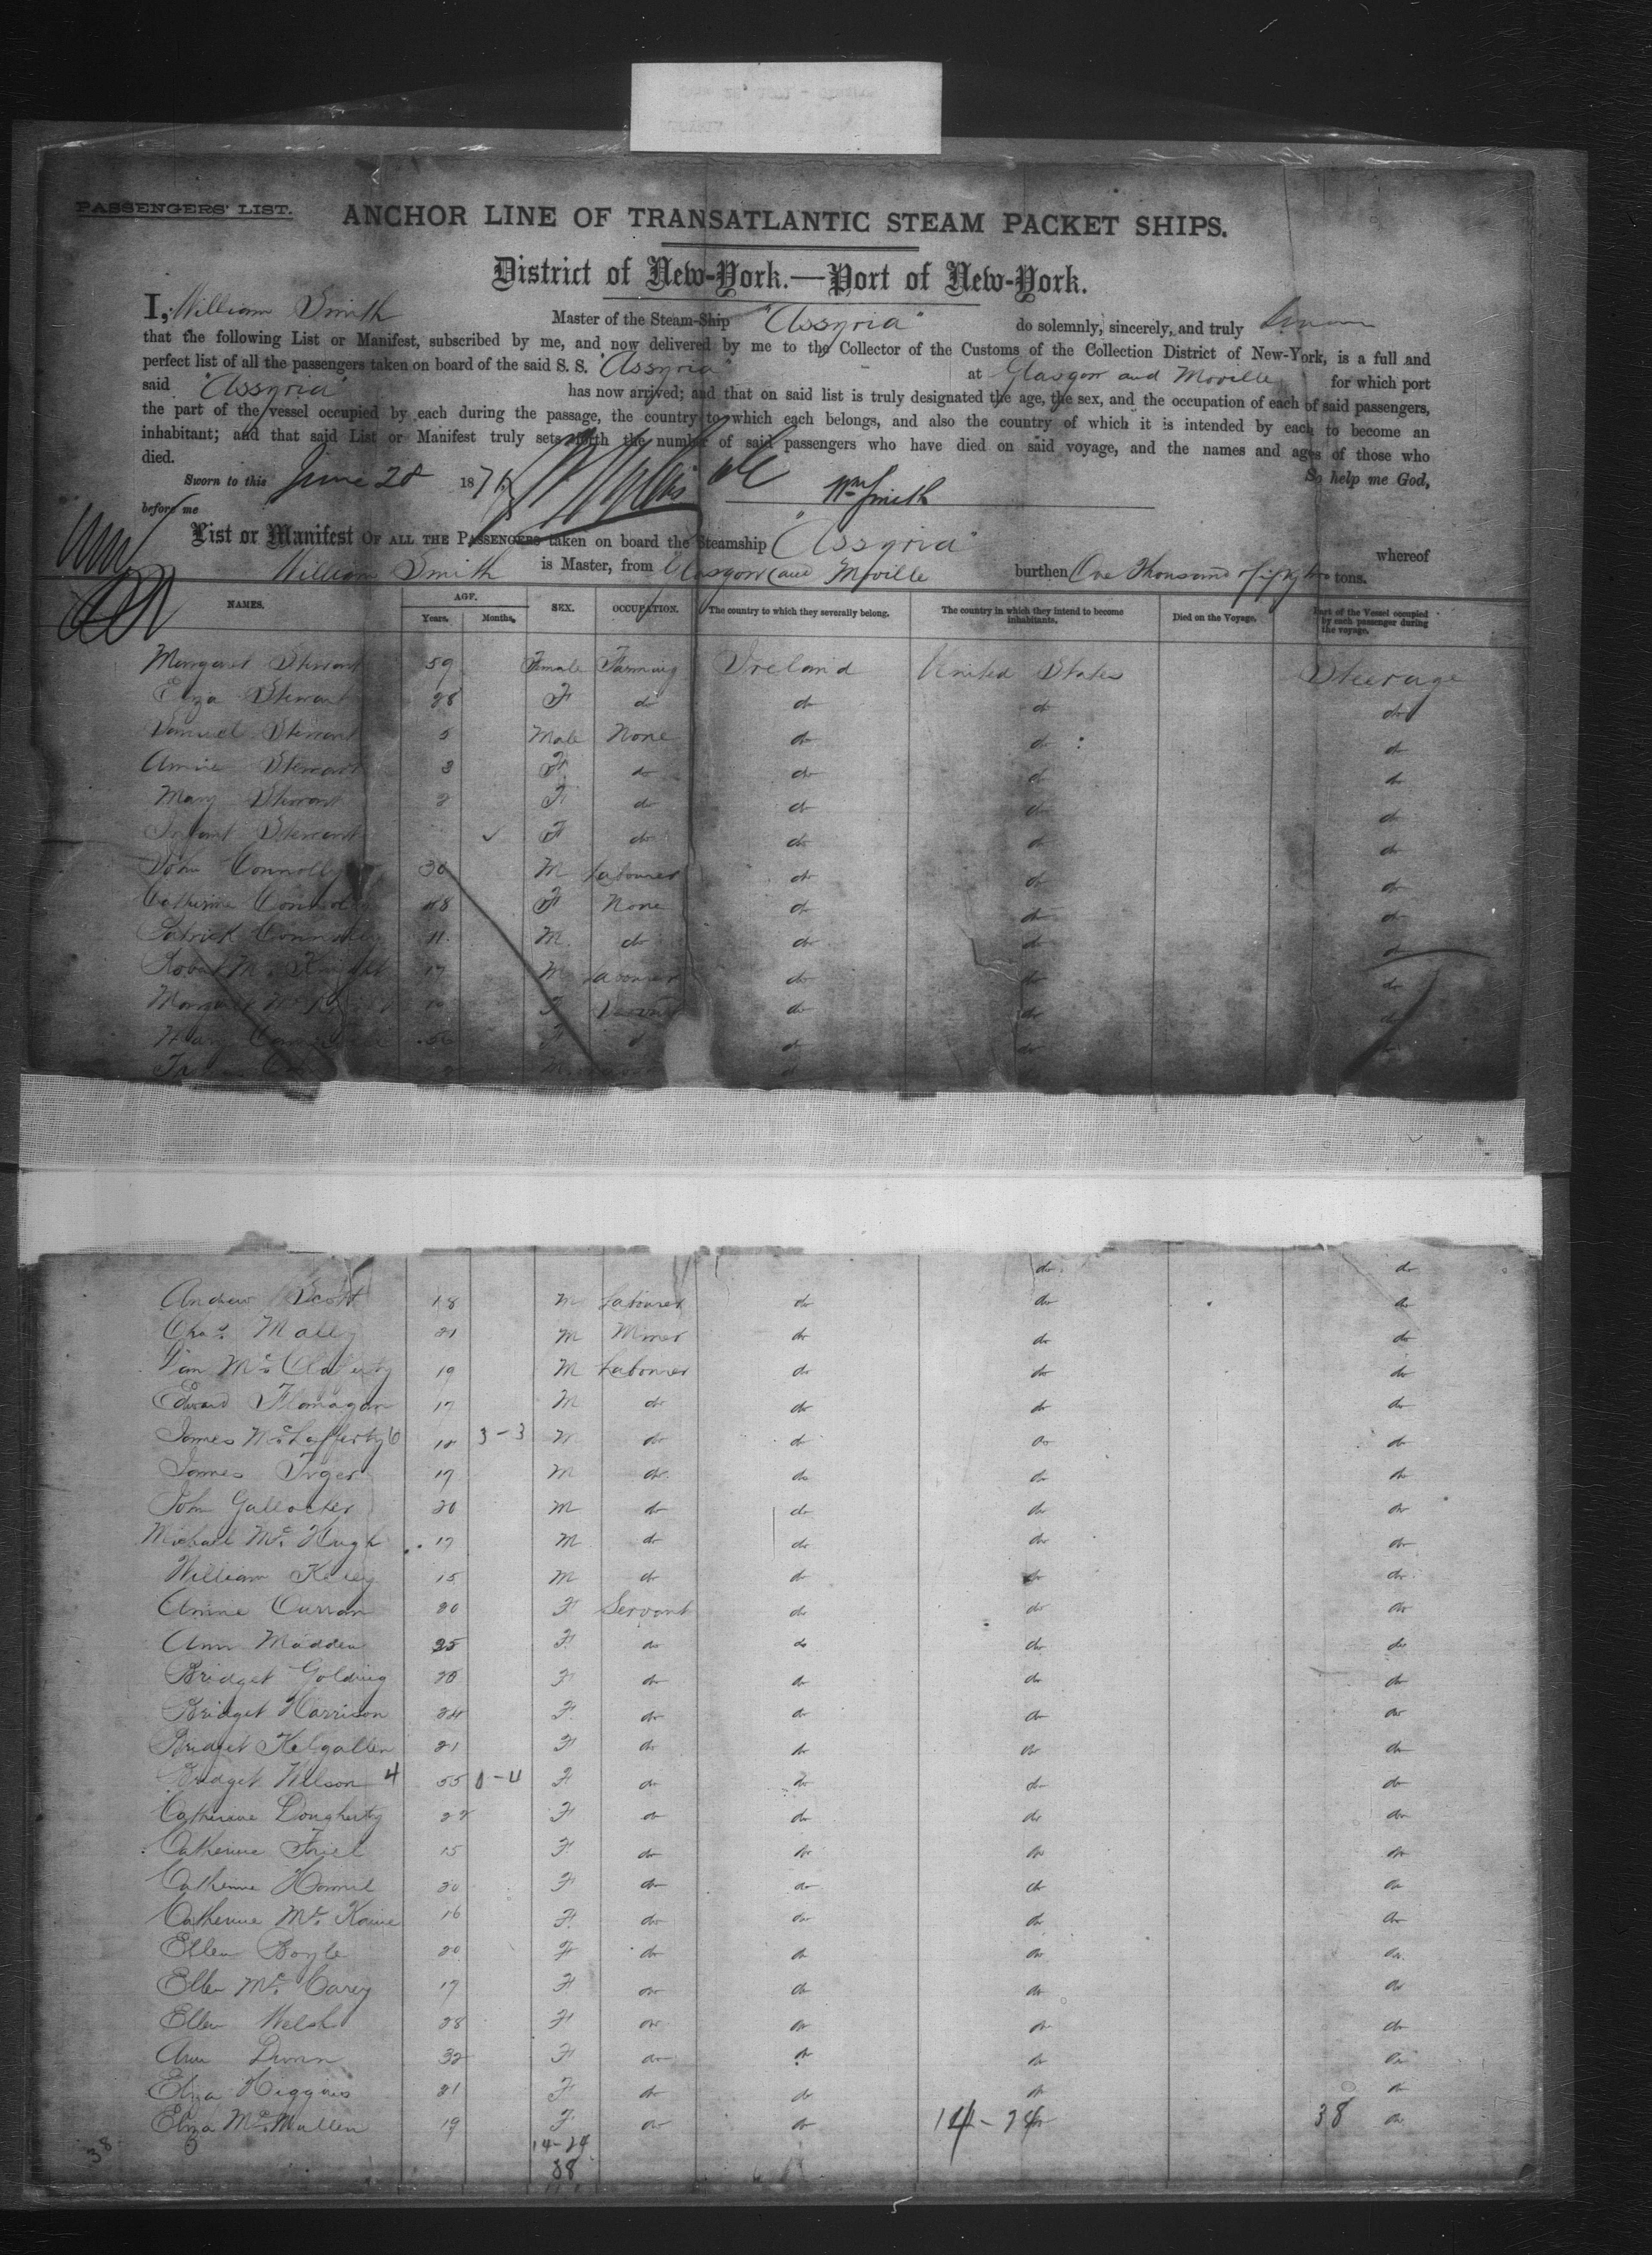 PASSENGERS' LIST.
ANCHOR LINE OF TRANSATLANTIC STEAM PACKET SHIPS.
District of New-York.—Port of New-York.
I, William Smith Master of the Steam-Ship "Assyria" do solemnly, sincerely, and truly
that the following List or Manifest, subscribed by me, and now delivered by me to the Collector of the Customs of the Collection District of New-York, is a full and
perfect list of all the passengers taken on board of the said S. S. "Assyria" at Glasgow and Moville for which port
said "Assyria" has now arrived; and that on said list is truly designated the age, the sex, and the occupation of each of said passengers,
the part of the vessel occupied by each during the passage, the country to which each belongs, and also the country of which it is intended by each to become an
inhabitant; and that said List or Manifest truly sets forth the number of said passengers who have died on said voyage, and the names and ages of those who
died. So help me God,
Sworn to this June 28 187 Wm Smith
before me
List or Manifest OF ALL THE PASSENGERS taken on board the Steamship "Assyria" whereof
William Smith is Master, from Glasgow and Moville burthen One Thousand & fifty two tons.
NAMES. AGE. Years. Months. SEX. OCCUPATION. The country to which they severally belong. The country in which they intend to become inhabitants. Died on the Voyage. Part of the Vessel occupied by each passenger during the voyage.
Margaret Stewart 59 Female Farming Ireland United States Steerage
Eliza Stewart 28 F do do do do
Samuel Stewart 5 Male None do do do
Annie Stewart 3 F do do do do
Mary Stewart 2 F do do do do
Infant Stewart F do do do do
John Connolly 30 M Labourer do do do
Catherine Connolly 28 F None do do do
Patrick Connolly 11 M do do do do
Robert Mc Knight 17 M Labourer do do do
F do do do
Mary F do do
do do
Andrew Scott 18 M Labourer do do do
Chas. Mally 21 M Miner do do do
Dan Mc Clafferty 19 M Labourer do do do
Edward Flanagan 17 M do do do do
James McLafferty 6 18 3-3 M do do do do
James 17 M do do do do
John Gallocher 20 M do do do do
Michael Mc Hugh 17 M do do do do
William Kelly 15 M do do do do
Annie Curran 20 F Servant do do do
Ann Madden 25 F do do do do
Bridget Golding 20 F do do do do
Bridget Harrison 24 F do do do do
Bridget Kelgallen 21 F do do do do
Bridget Nelson 4 55 0-4 F do do do do
Catherine Dougherty 22 F do do do do
Catherine Friel 15 F do do do do
Catherine 20 F do do do do
Catherine Mc 16 F do do do do
Ellen Boyle 20 F do do do do
Ellen Mc Carey 17 F do do do do
Ellen Welsh 28 F do do do do
Ann Dunn 32 F do do do do
Eliza Higgins 21 F do do do do
Eliza McMullen 19 F do do 14-24 38 do
38 14-24
38
5